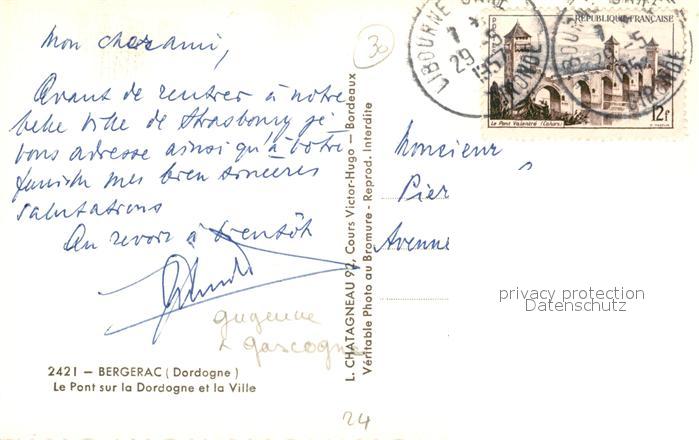 Mon cher ami,
Avant de rentrer à notre
belle ville de Strasbourg je
vous adresse ainsi qu'à votre
famille mes bien sincères
salutations
Au revoir à bientôt
guyenne
& gascogne
2421 — BERGERAC (Dordogne)
Le Pont sur la Dordogne et la Ville
24
30
L. CHATAGNEAU 92, Cours Victor-Hugo — Bordeaux
Véritable Photo au Bromure - Reprod. Interdite
LIBOURNE GARE
29-5
1957
GIRONDE
REPUBLIQUE FRANÇAISE
POSTES
Le Pont Valentré (Cahors)
12F
Monsieur
Pier
Avenue
privacy protection
Datenschutz